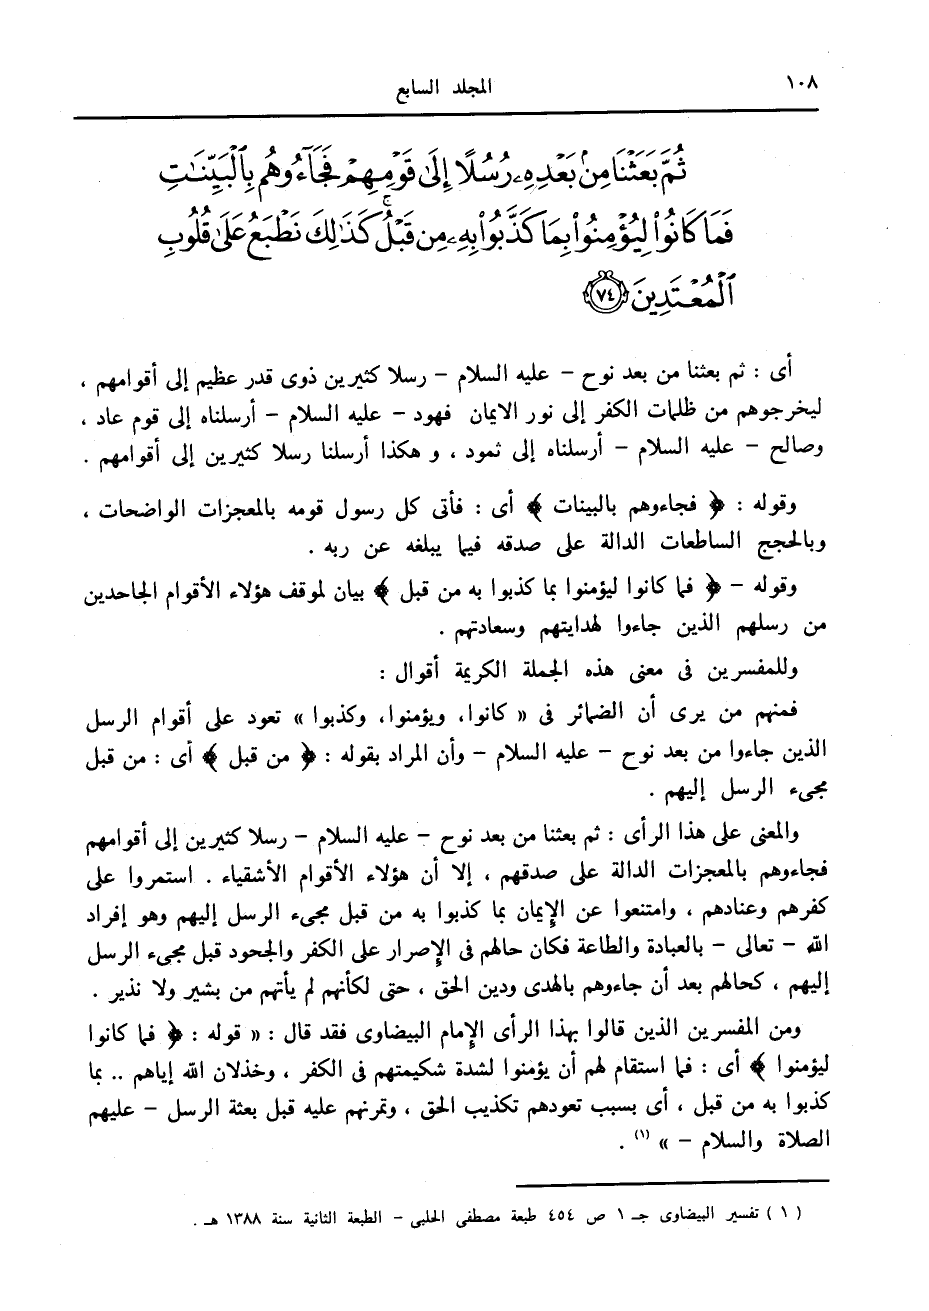 ١٠٨ المجلد السابع
ثُمَّ بَعَثْنَا مِنۢ بَعْدِهِۦ رُسُلًا إِلَىٰ قَوْمِهِمْ فَجَآءُوهُم بِٱلْبَيِّنَـٰتِ
فَمَا كَانُوا۟ لِيُؤْمِنُوا۟ بِمَا كَذَّبُوا۟ بِهِۦ مِن قَبْلُ ۚ كَذَٰلِكَ نَطْبَعُ عَلَىٰ قُلُوبِ
ٱلْمُعْتَدِينَ ٧٤
أى : ثم بعثنا من بعد نوح – عليه السلام – رسلا كثيرين ذوى قدر عظيم إلى أقوامهم ،
ليخرجوهم من ظلمات الكفر إلى نور الايمان فهود – عليه السلام – أرسلناه إلى قوم عاد ،
وصالح – عليه السلام – أرسلناه إلى ثمود ، و هكذا أرسلنا رسلا كثيرين إلى أقوامهم .
وقوله : ﴿ فجاءوهم بالبينات ﴾ أى : فأتى كل رسول قومه بالمعجزات الواضحات ،
وبالحجج الساطعات الدالة على صدقه فيما يبلغه عن ربه .
وقوله – ﴿ فما كانوا ليؤمنوا بما كذبوا به من قبل ﴾ بيان لموقف هؤلاء الأقوام الجاحدين
من رسلهم الذين جاءوا لهدايتهم وسعادتهم .
وللمفسرين فى معنى هذه الجملة الكريمة أقوال :
فمنهم من يرى أن الضمائر فى « كانوا، ويؤمنوا، وكذبوا » تعود على أقوام الرسل
الذين جاءوا من بعد نوح – عليه السلام – وأن المراد بقوله : ﴿ من قبل ﴾ أى : من قبل
مجىء الرسل إليهم .
والمعنى على هذا الرأى : ثم بعثنا من بعد نوح – عليه السلام – رسلا كثيرين إلى أقوامهم
فجاءوهم بالمعجزات الدالة على صدقهم ، إلا أن هؤلاء الأقوام الأشقياء . استمروا على
كفرهم وعنادهم ، وامتنعوا عن الإيمان بما كذبوا به من قبل مجىء الرسل إليهم وهو إفراد
الله – تعالى – بالعبادة والطاعة فكان حالهم فى الإصرار على الكفر والجحود قبل مجىء الرسل
إليهم ، كحالهم بعد أن جاءوهم بالهدى ودين الحق ، حتى لكأنهم لم يأتهم من بشير ولا نذير .
ومن المفسرين الذين قالوا بهذا الرأى الإمام البيضاوى فقد قال : « قوله : ﴿ فما كانوا
ليؤمنوا ﴾ أى : فما استقام لهم أن يؤمنوا لشدة شكيمتهم فى الكفر ، وخذلان الله إياهم .. بما
كذبوا به من قبل ، أى بسبب تعودهم تكذيب الحق ، وتمرنهم عليه قبل بعثة الرسل – عليهم
الصلاة والسلام – » (١) .
( ١ ) تفسير البيضاوى جـ ١ ص ٤٥٤ طبعة مصطفى الحلبى – الطبعة الثانية سنة ١٣٨٨ هـ .